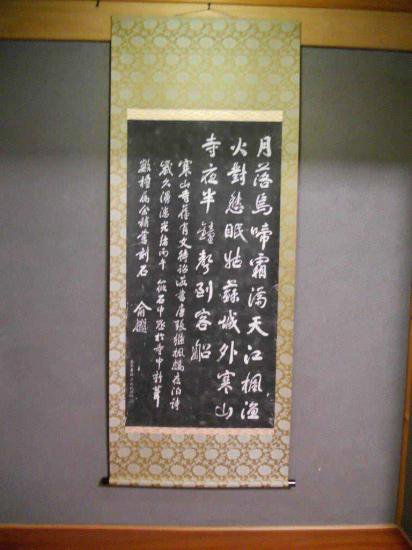 月落烏啼霜滿天江楓漁
火對愁眠姑蘇城外寒山
寺夜半鐘聲到客船
寒山寺舊有文待詔所書唐張繼楓橋夜泊詩
歲久漫漶光緒丙午筱石中丞於寺中新葺
數楹屬余補書刻石
俞樾